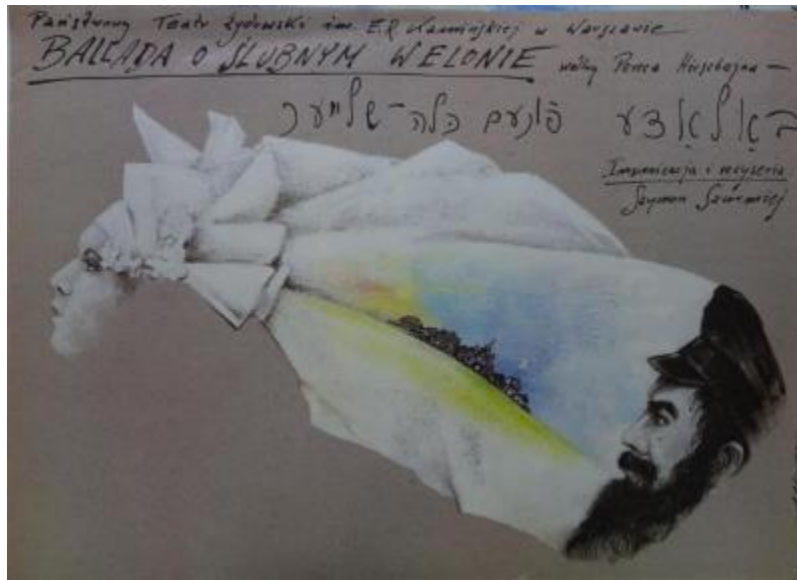 Państwowy Teatr Żydowski im. E.R. Kamińskiej w Warszawie
BALLADA O ŚLUBNYM WELONIE według Pereca Hirszbejna —
באַלאַדע פֿונעם כּלה-שלייער
Inscenizacja i reżyseria
Szymon Szurmiej